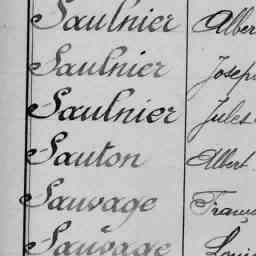 Saulnier Alber
Saulnier Joseph
Saulnier Jules
Sauton Albert
Sauvage Franç
Sauvage Loui